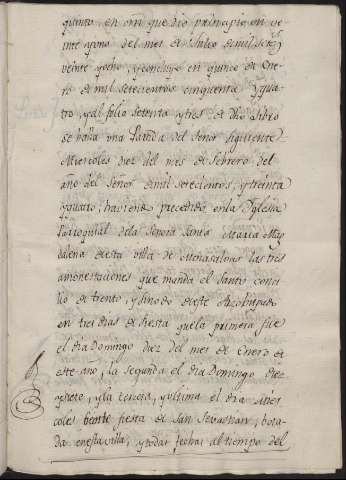 quinto, en su que dio principio en ve
inte y uno del mes de Julio de mil setez.s
veinte y ocho, y concluyo en quince de Ene
ro de mil setecientos cinquenta y qua
tro, y al folio setenta y tres de dho Libro
se halla una Partida del tenor siguiente
Miercoles diez del mes de Febrero del
año del Señor de mil setecientos, y treinta
y quatro, haviendo precedido en la Yglesia
Parroquial de la Señora Santa Maria Mag
dalena de esta villa de Menasalvas las tres
amonestaciones que manda el Santo conci
lio de trento, y sinodo de este Arzobispado
en tres dias de fiesta que la primera fue
el dia Domingo diez del mes de Enero de
este año, la segunda el dia Domingo diez
y siete, y la tercera, y ultima el dia Mier
coles veinte fiesta de San Sevastian, vota
da en esta villa, y todas fechas al tiempo del